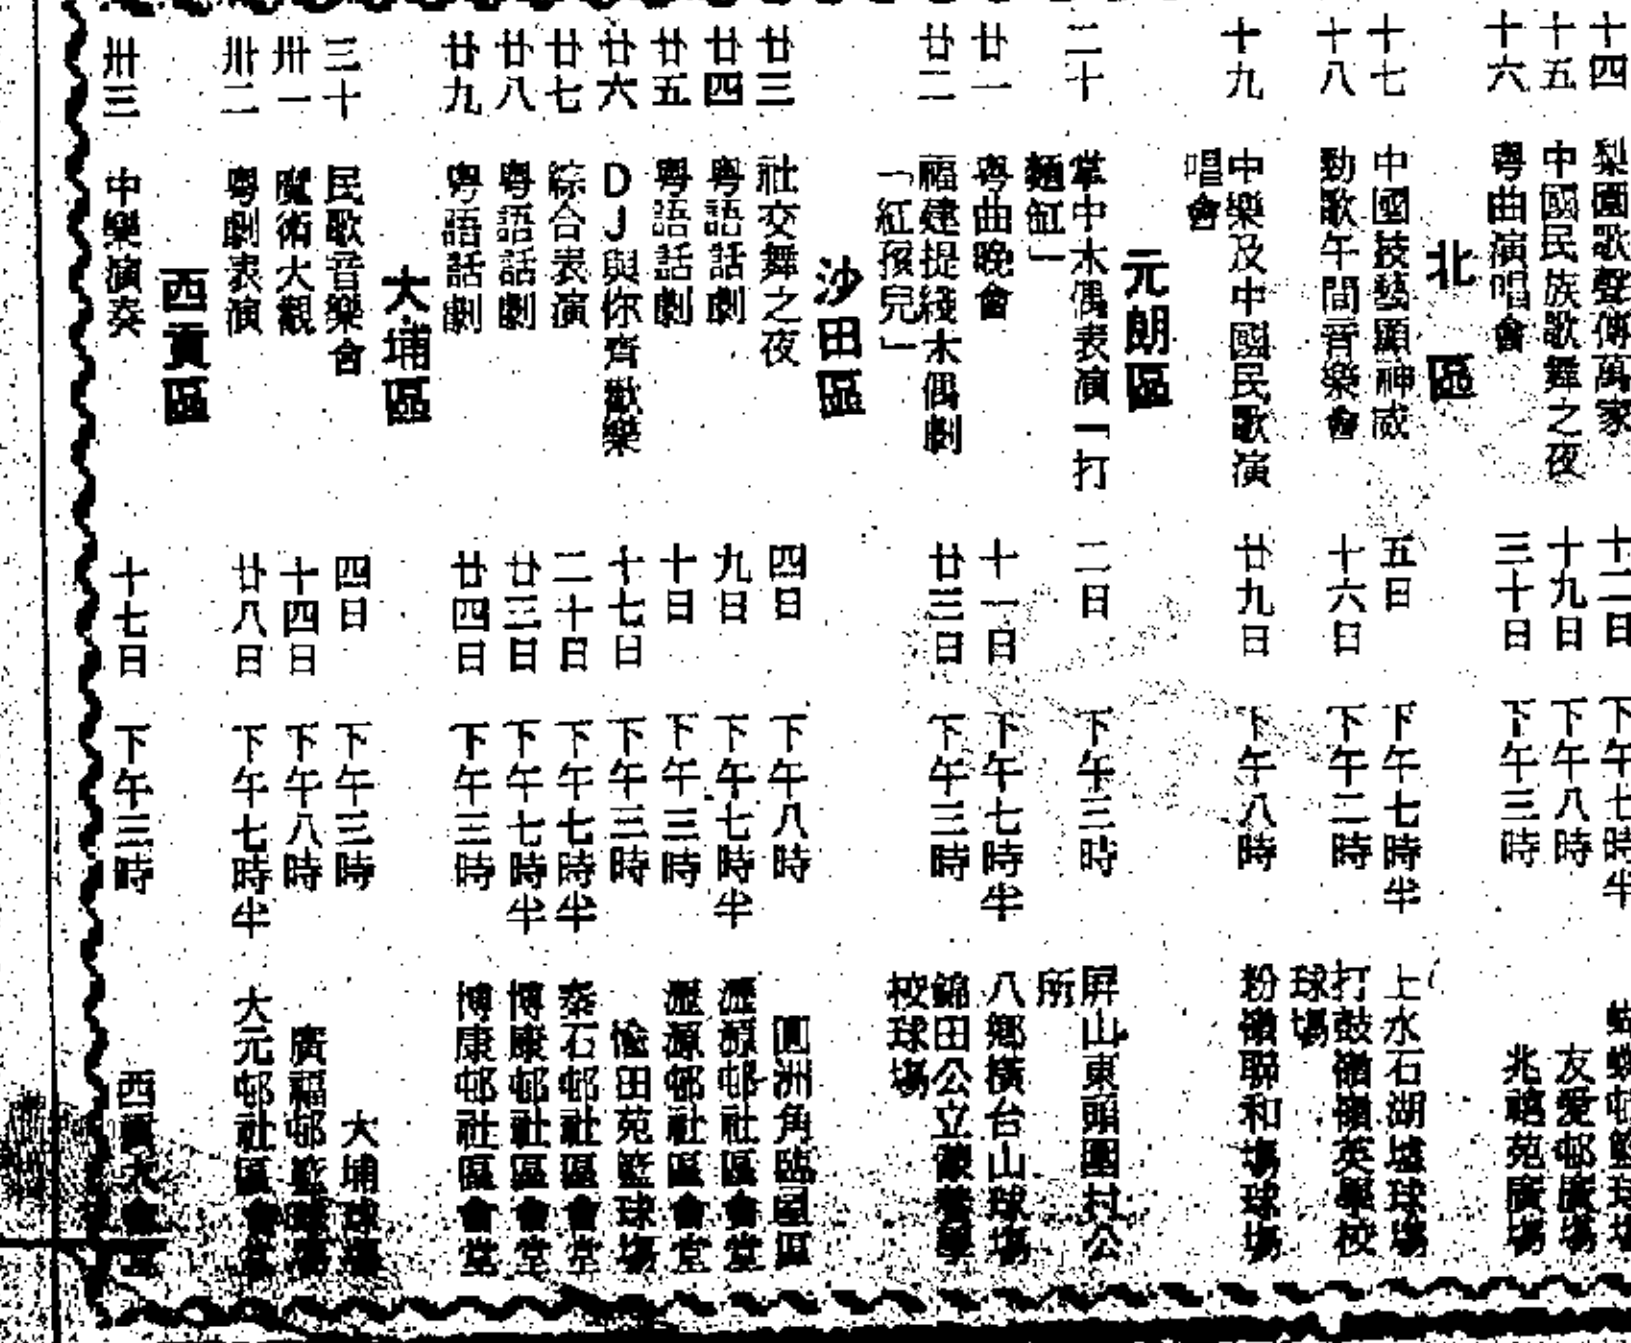 十四 梨園歌聲傳萬家 十二日 下午七時半
十五 中國民族歌舞之夜 十九日 下午八時 友愛邨廣場
十六 粵曲演唱會 三十日 下午三時 兆禧苑廣場
北 區
十七 中國技藝顯神威 五日 下午七時半 上水石湖墟球場
十八 勁歌午間音樂會 十六日 下午二時 打鼓嶺嶺英學校
球場
十九 中樂及中國民歌演 廿九日 下午八時 粉嶺聯和場球場
唱會
元朗區
二十 掌中木偶表演「打 二日 下午三時 屏山東頭圍村公
麵缸」 所
廿一 粵曲晚會 十一日 下午七時半 八鄉橫台山球場
廿二 福建提綫木偶劇 廿三日 下午三時 錦田公立蒙養學
「紅孩兒」 校球場
沙田區
廿三 社交舞之夜 四日 下午八時 圓洲角臨屋區
廿四 粵語話劇 九日 下午七時半 瀝源邨社區會堂
廿五 粵語話劇 十日 下午三時 瀝源邨社區會堂
廿六 DJ與你齊歡樂 十七日 下午三時 愉田苑籃球場
廿七 綜合表演 二十日 下午七時半 秦石邨社區會堂
廿八 粵語話劇 廿三日 下午七時半 博康邨社區會堂
廿九 粵語話劇 廿四日 下午三時 博康邨社區會堂
大埔區
三十 民歌音樂會 四日 下午三時 大埔球場
卅一 魔術大觀 十四日 下午八時 廣福邨籃球場
卅二 粵劇表演 廿八日 下午七時半 大元邨社區會堂
西貢區
卅三 中樂演奏 十七日 下午三時 西貢大會堂